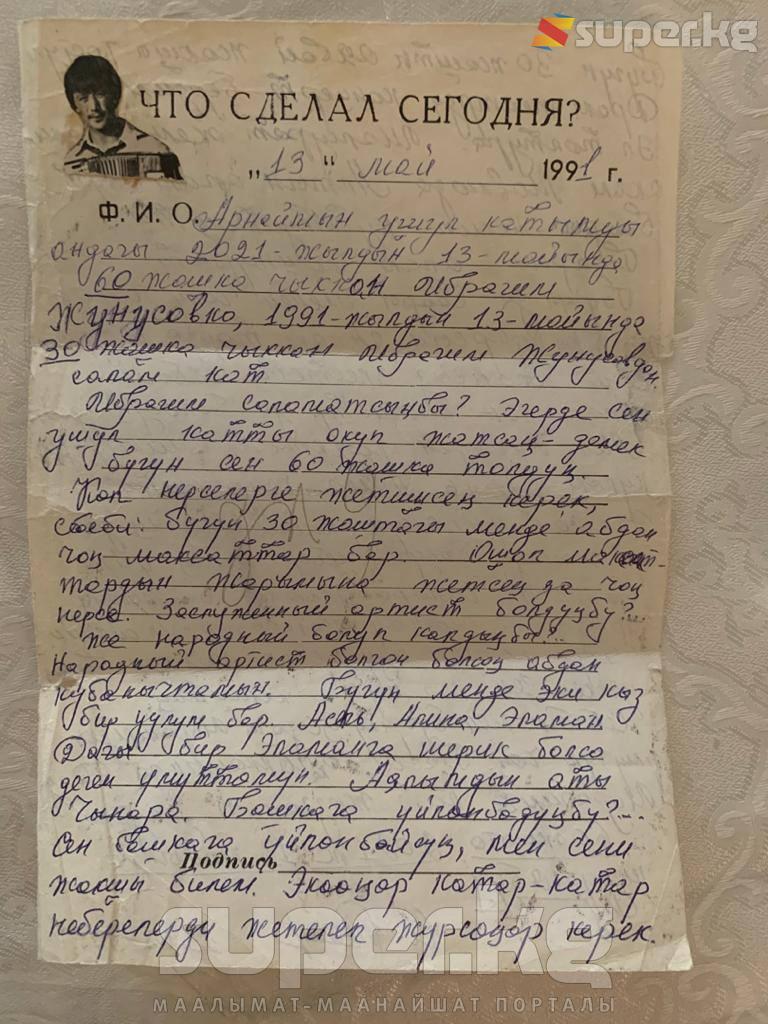 superkg
ЧТО СДЕЛАЛ СЕГОДНЯ?
"13" май 1991 г.
Ф. И. О. Арнаймын ушул катымды
андагы 2021-жылдын 13-майында
60 жашка чыккан Ибрагим
Жунусовко, 1991-жылдын 13-майында
30 жашка чыккан Ибрагим Жунусовдон
салам кат.
Ибрагим саламатсыңбы? Эгерде сен
ушул катты окуп жатсаң - демек
бүгүн сен 60 жашка толдуң.
Көп нерселерге жетишисең керек,
себеби: бүгүн 30 жаштагы менде абдан
чоң максаттар бар. Ошол максат-
тардын жарымына жетсең да чоң
нерсе. Заслуженный артист болдуңбу?...
же народный болуп калдыңбы?..
Народный артист болгон болсоң абдан
кубанычтамын. Бүгүн менде эки кыз
бир уулум бар. Асель, Алина, Эламан
Дагы бир Эламанга шерик болсо
деген үмүттөмүн. Аялымдын аты
Чынара. Башкага үйлөнбөдүңбү?...
Сен башкага үйлөнбөйсүң, мен сени
Подпись
жакшы билем. Экөөңөр катар-катар
неберелерди жетелеп жүрсөңөр керек.
super.kg
МААЛЫМАТ-МААНАЙШАТ ПОРТАЛЫ